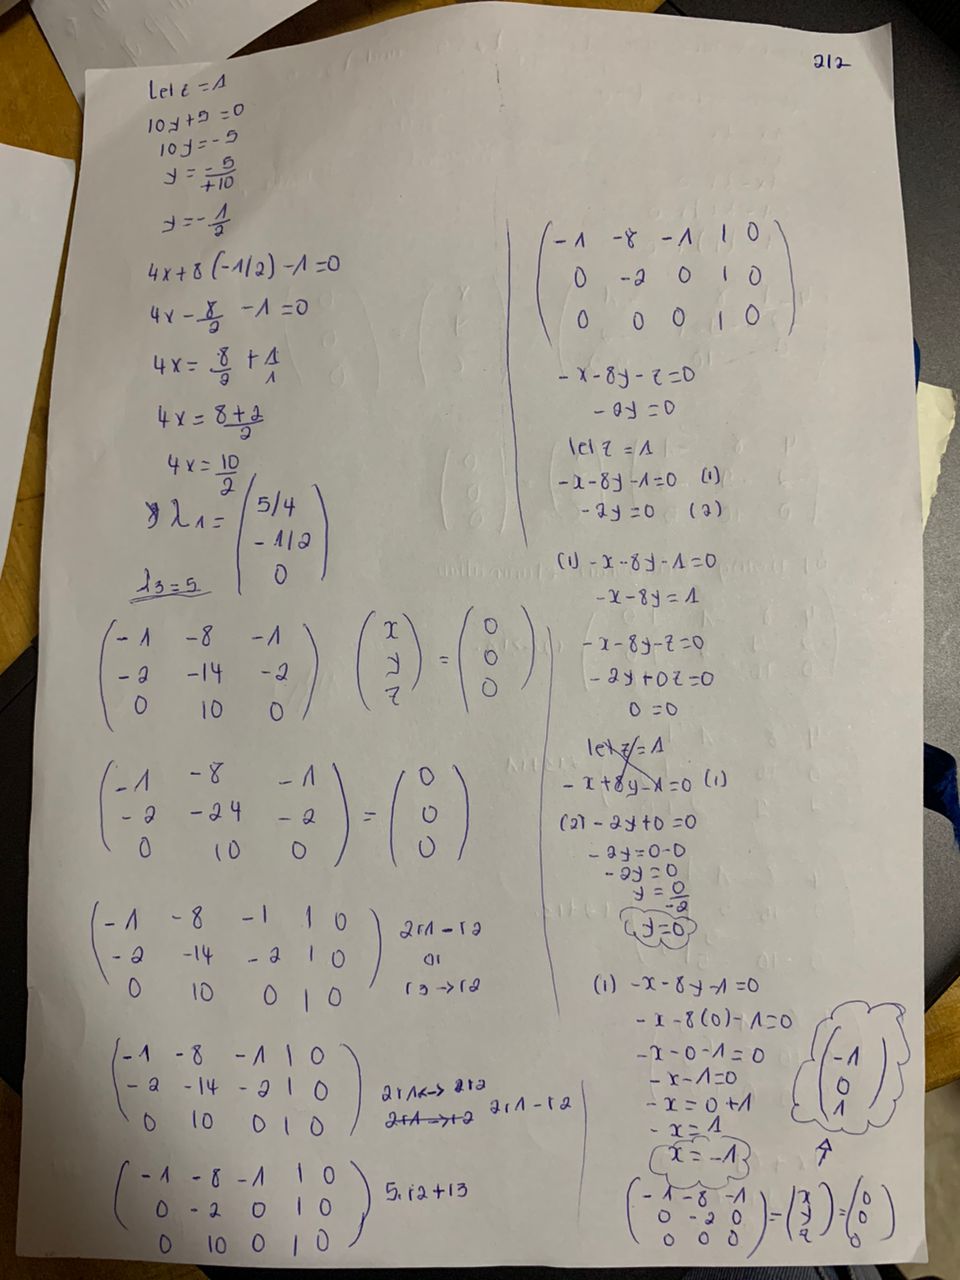 212
Let z = 1
10y+5 = 0
10y = -5
y = -5/+10
y = -1/2
4x+8(-1/2) -1=0
4x - 8/2 -1 =0
4x = 8/2 + 1/1
4x = 8+2/2
4x = 10/2
λ1 = (5/4
-1/2
0)
λ3=5
(-1 -8 -1) (x) = (0)
(-2 -14 -2) (y) (0)
(0 10 0) (z) (0)
(-1 -8 -1) = (0)
(-2 -24 -2) (0)
(0 10 0) (0)
(-1 -8 -1 | 0) 2r1 - r2
(-2 -14 -2 | 0) or
(0 10 0 | 0) r3 → r2
(-1 -8 -1 | 0)
(-2 -14 -2 | 0) 2r1 <-> 2r2
(0 10 0 | 0) 2r1 → r2 2r1 - r2
(-1 -8 -1 | 0) 5.r2+r3
(0 -2 0 | 0)
(0 10 0 | 0)
(-1 -8 -1 | 0)
(0 -2 0 | 0)
(0 0 0 | 0)
-x-8y-z=0
-2y=0
let z = 1
-x-8y-1=0 (1)
-2y=0 (2)
(1) -x-8y-1=0
-x-8y=1
-x-8y-z=0
-2y+0z=0
0=0
let z=1
-x+8y-1=0 (1)
(2) -2y+0=0
-2y=0-0
-2y=0
y=0/-2
y=0
(1) -x-8y-1=0
-x-8(0)-1=0
-x-0-1=0
-x-1=0
-x=0+1
-x=1
x=-1
(-1
0
1)
(-1 -8 -1) = (x) = (0)
(0 -2 0) (y) (0)
(0 0 0) (z) (0)